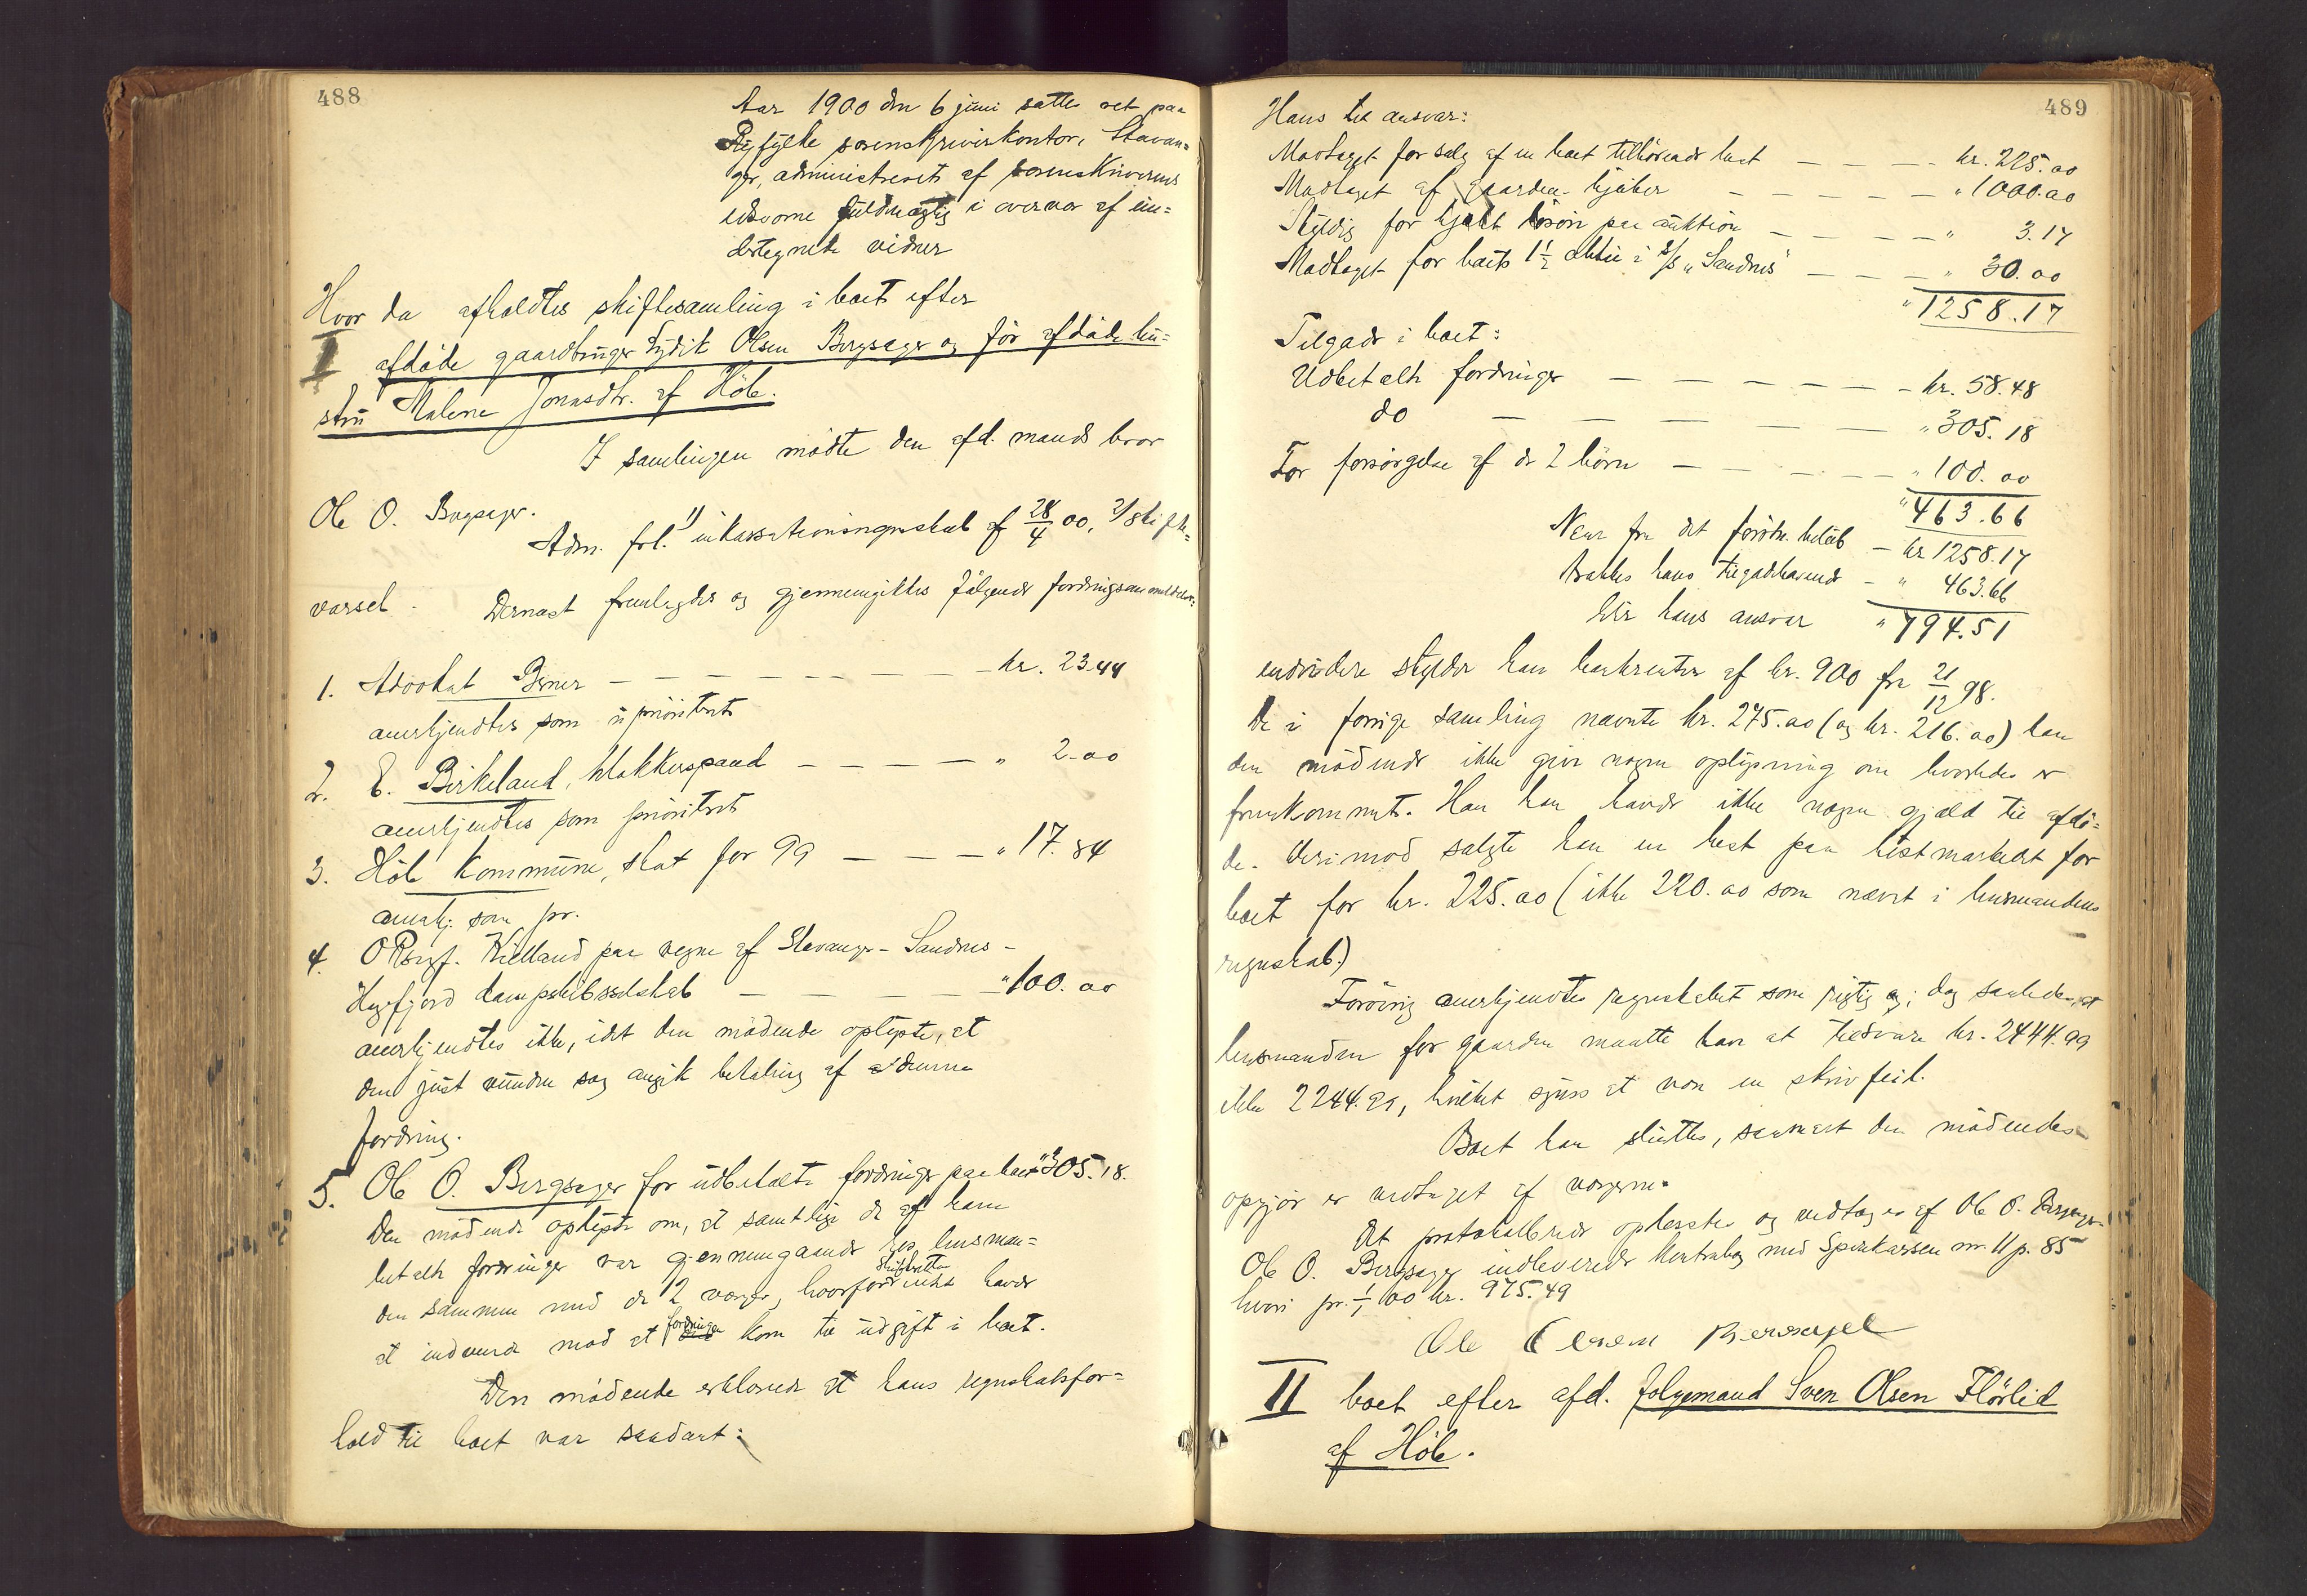 488
Aar 1900 den 6 juni sattes ret paa
Ryfylke sorenskriverkontor, Stavan=
ger, administreret af sorenskriverens
edsvorne fuldmægtig i overvær af un=
dertegnede vidner
Hvor da afholdtes skiftesamling i boet efter
I afdøde gaardbruger Sydik Olsen Bergsager og før afdøde hu=
stru Malene Jonasdtr. af Høle.
I samlingen mødte den afd. mands bror
Ole O. Bergsager.
Adm. frl. 1) inkassationsregnskab af 28/4 00, 2/ skifte-
varsel.
Dernæst fremlagdes og gjennemgikkes følgende fordringsanmeldelser:
1. Advokat Berner — — — — — — — kr. 23.44
anerkjendtes som uprioritert
2. E. Birkeland, klokkerspand — — — — — " 2.00
anerkjendtes som prioritert
3. Høle kommune, skat for 99 — — — " 17.84
anerkj. som pr.
4. ORsagf. Kielland paa vegne af Stavanger-Sandnes-
Høgsfjord dampskibsselskab — — — — " 100.00
anerkjendtes ikke, idet den mødende oplyste, at
den just vundne sag angik betaling af denne
fordring.
5. Ole O. Bergsager for udbetalte fordringer paa boet " 305.18.
Den mødende oplyste om, at samtlige de af ham
betalte fordringer var gjennemgaaede hos lensman=
den sammen med de 2 værger, hvorfor skifteretten intet havde
at indvende mod at fordringen kom til udgift i boet.
Den mødende erklærede at hans regnskabsfor=
hold til boet var saadant:
489
Hans til ansvar:
Modtaget for salg af en boet tilhørende hest — — — kr. 225.00
Modtaget af gaardens kjøber — — — — " 1000.00
Skyldig for kjøbt løsøre paa auktion — — — — " 3.17
Modtaget for boets 1 1/2 aktie i D/S "Sandnes" — — — " 30.00
" 1258.17
Tilgode i boet:
Udbetalte fordringer — — — — — — kr. 58.48
do — — — — — " 305.18
For forsørgelse af de 2 børn — — — — " 100.00
" 463.66
Naar fra det førstn. beløb — kr 1258.17
trækkes hans tilgodehavende — " 463.66
blir hans ansvar " 794.51
endvidere skylder han bankrenter af kr. 900 fra 21/12 98.
De i forrige samling nævnte kr. 275.00 (og kr. 216.00) kan
den mødende ikke give nogen oplysning om hvorledes er
fremkommet. Han havde ikke nogen gjæld til afdø=
de. Derimod solgte han en hest paa hestmarkedet for
boet for kr. 225.00 (ikke 220.00 som nævnt i lensmandens
regnskab.)
Forøvrig anerkjendtes regnskabet som rigtig dog saaledes, at
lensmanden for gaarden maatte have at tilsvare kr. 2444.99
ikke 2244.99, hvilket synes at være en skrivfeil.
Boet kan sluttes, saasnart den mødendes
opgjør er vedtaget af værgerne.
Det protokollerede oplæstes og vedtoges af Ole O. Bergsager.
Ole O. Bergsager indleverede kontrabog med Sparekassen nr. 11 p. 85
hvori pr. 1/1 00 kr. 975.49
Ole Olsen Bersagel
II boet efter afd. følgemand Sven Olsen Flørlid
af Høle.